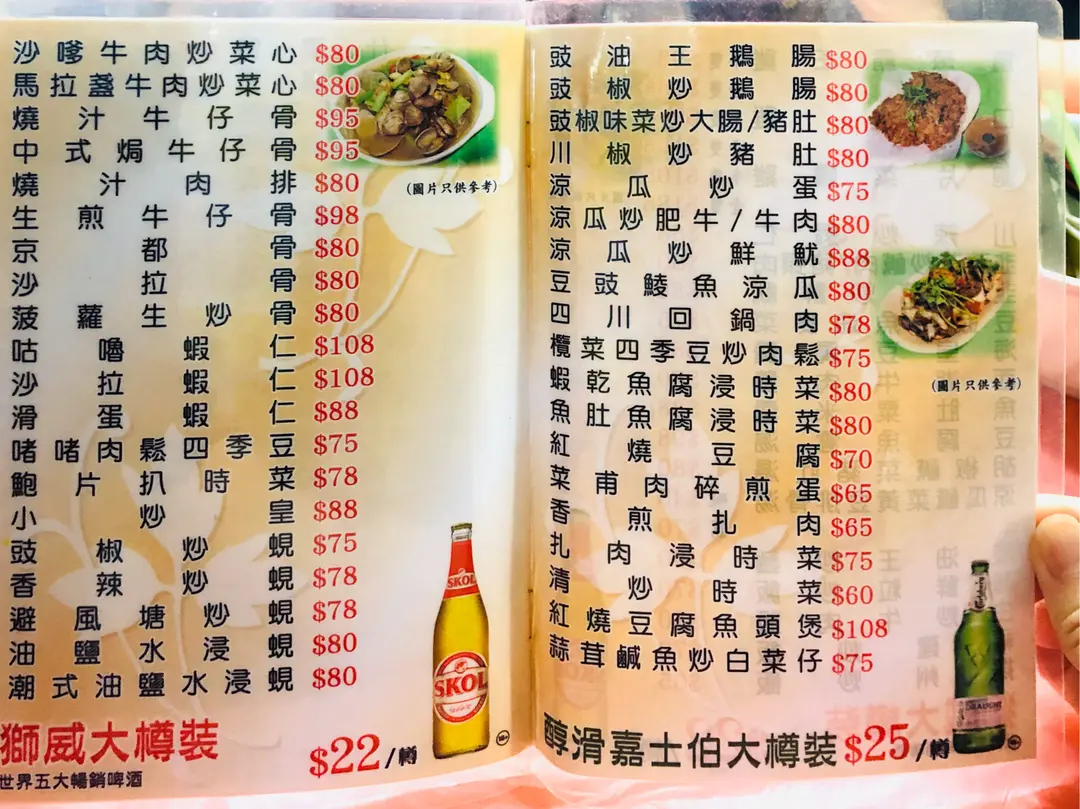 沙嗲牛肉炒菜心 $80
馬拉盞牛肉炒菜心 $80
燒汁牛仔骨 $95
中式焗牛仔骨 $95
燒汁肉排 $80
生煎牛仔骨 $98
京都骨 $80
沙拉骨 $80
菠蘿生炒骨 $80
咕嚕蝦仁 $108
沙拉蝦仁 $108
滑蛋蝦仁 $88
啫啫肉鬆四季豆 $75
鮑片扒時菜 $78
小炒皇 $88
豉椒炒蜆 $75
香辣炒蜆 $78
避風塘炒蜆 $78
油鹽水浸蜆 $80
潮式油鹽水浸蜆 $80
(圖片只供參考)
SKOL
SKOL
獅威大樽裝 $22/樽
世界五大暢銷啤酒
豉油王鵝腸 $80
豉椒炒鵝腸 $80
豉椒味菜炒大腸/豬肚 $80
川椒炒豬肚 $80
涼瓜炒蛋 $75
涼瓜炒肥牛/牛肉 $80
涼瓜炒鮮魷 $88
豆豉鯪魚涼瓜 $80
四川回鍋肉 $78
欖菜四季豆炒肉鬆 $75
蝦乾魚腐浸時菜 $80
魚肚魚腐浸時菜 $80
紅燒豆腐 $70
菜甫肉碎煎蛋 $65
香煎扎肉 $65
扎肉浸時菜 $75
清炒時菜 $60
紅燒豆腐魚頭煲 $108
蒜茸鹹魚炒白菜仔 $75
(圖片只供參考)
Carlsberg
DRAUGHT
醇滑嘉士伯大樽裝 $25/樽